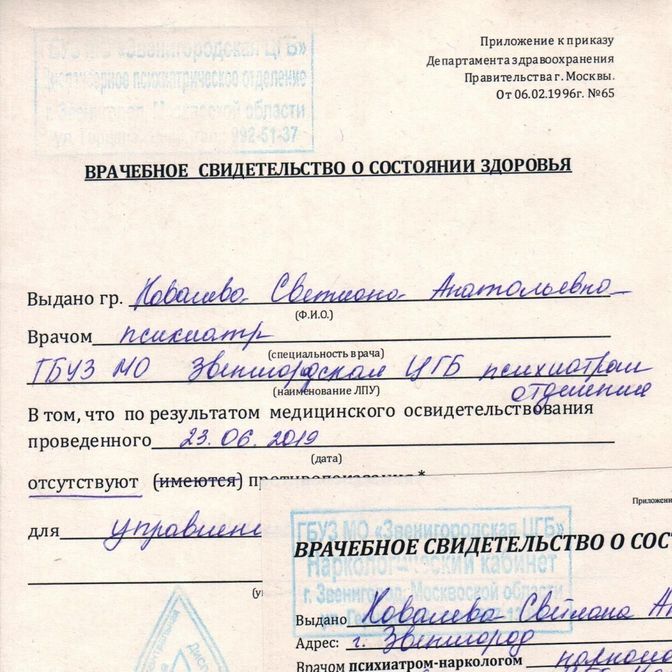 ГБУЗ МО «Звенигородская ЦГБ»
Диспансерное психиатрическое отделение
г. Звенигород, Московской области
992-51-37
Приложение к приказу
Департамента здравоохранения
Правительства г. Москвы.
От 06.02.1996г. №65
ВРАЧЕБНОЕ СВИДЕТЕЛЬСТВО О СОСТОЯНИИ ЗДОРОВЬЯ
Выдано гр. Ковалева Светлана Анатольевна
(Ф.И.О.)
Врачом психиатр
(специальность врача)
ГБУЗ МО Звенигородская ЦГБ психиатрич
отделение
(наименование ЛПУ)
В том, что по результатом медицинского освидетельствования
проведенного 23.06.2019
(дата)
отсутствуют (имеются) противопоказания *
для управлени
Приложени
ГБУЗ МО «Звенигородская ЦГБ»
Наркологический кабинет
г. Звенигород, Московской области
ВРАЧЕБНОЕ СВИДЕТЕЛЬСТВО О СОС
Выдано Ковалева Светлана А
Адрес: г. Звенигород
Врачом психиатром-наркологом